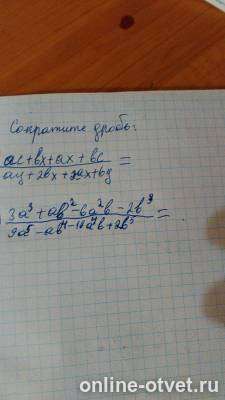 Сократите дробь:
ac+bx+ax+bc
ay+2bx+2ax+by =
3a³+ab²-6a²b-2b³
9a⁵-ab⁴-18a⁴b+2b⁵ =
online-otvet.ru